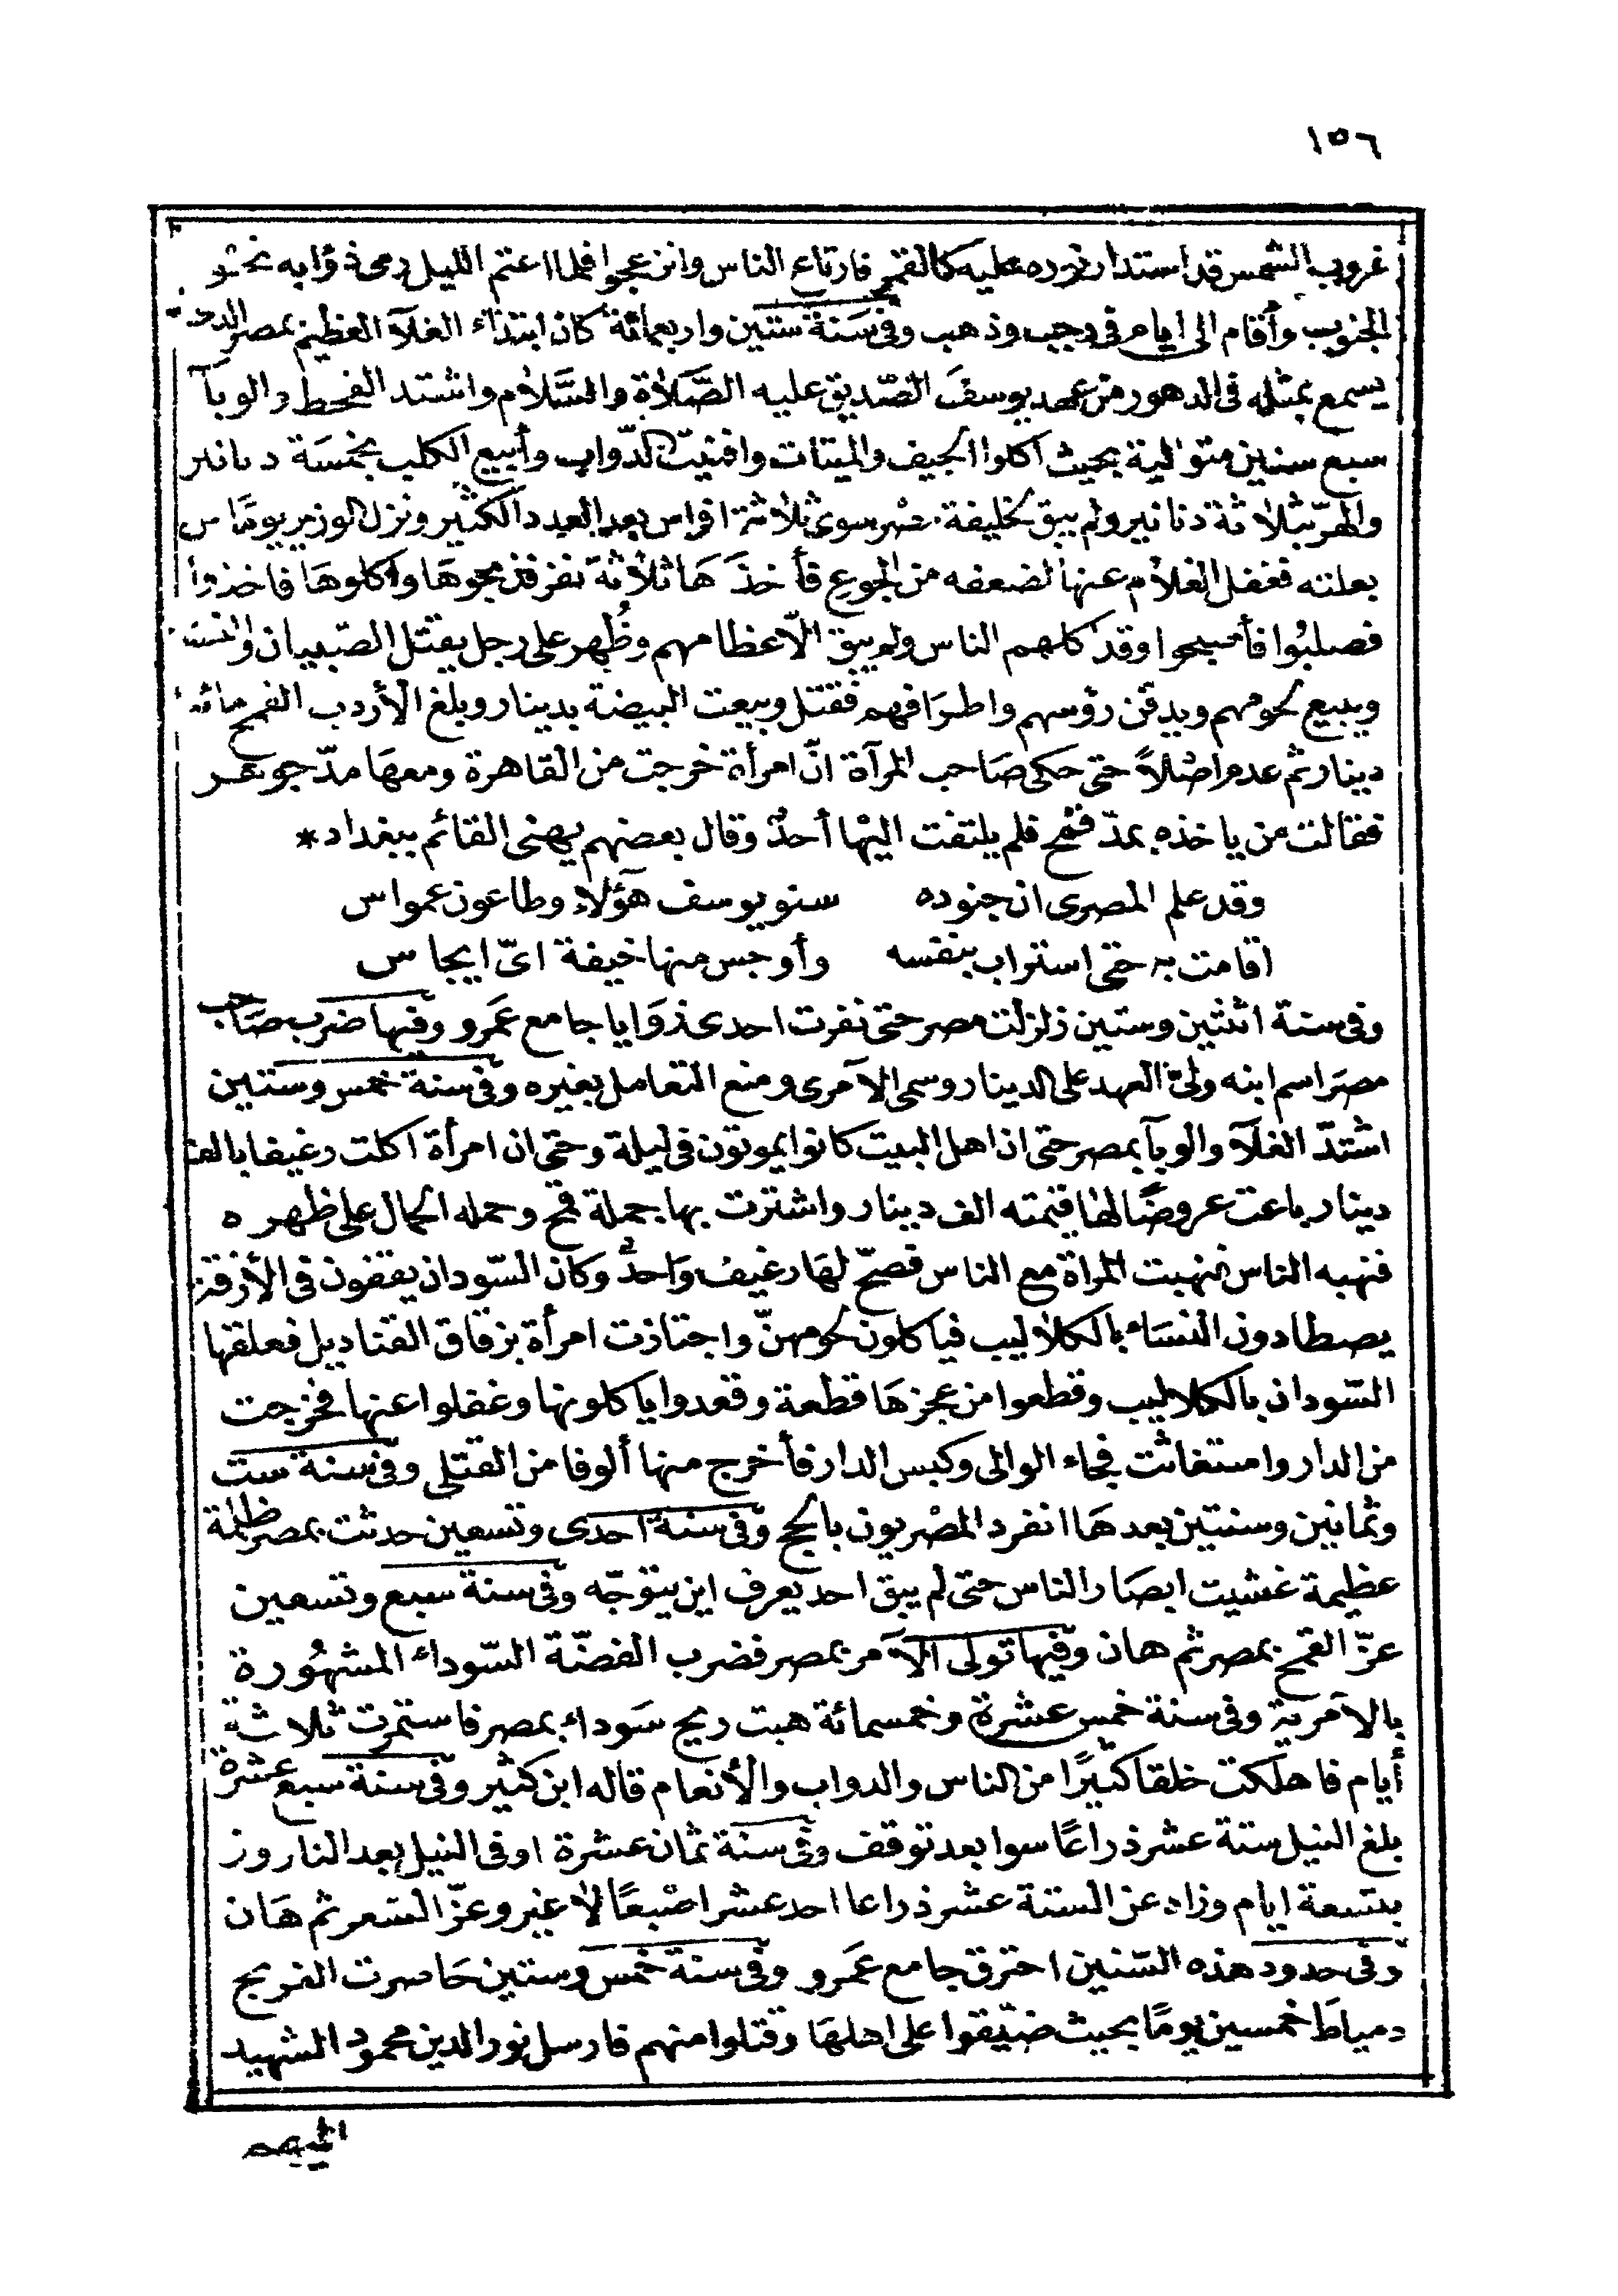 ١٥٦
غروب الشمس قد استدار نوره عليه كالقمر فارتاع الناس وانزعجوا فلما اعتم الليل رمى ذؤابه نحو
الجنوب وأقام الى ايام فى رجب وذهب وفى سنة ستين واربعمائة كان ابتداء الغلآ العظيم بمصر الذى
يسمع بمثله فى الدهور من عهد يوسف الصّديق عليه الصَّلاة والسَّلام واشتد القحط والوبآ
سبع سنين متوالية بحيث اكلوا الجيف والميتات وافنيت الدّواب وأبيع الكلب بخمسَة دنانير
والهرّ بثلاثة دنانير ولم يبق لخليفة مصْر سوى ثلاثة افراس بعد العدد الكثير ونزل الوزير يومًا
بغلته فغفل الغلام عنها لضعفه من الجوع فأخذَهَا ثلاثة نفر فذبحوهَا واكلوهَا فاخذوا
فصلبُوا فأصبحوا وقد اكلهم الناس ولم يبق الّا عظامهم وظُهر على رجل يقتل الصّبيان والنسَا
ويبيع لحومهم ويدفن رؤسهم واطرَافهم فقتل وبيعت البيضة بدينار وبلغ الأردب القمح مائة
دينار ثم عدم اصْلاً حتى حكى صَاحب المرآة انّ امرأة خرجت من القاهرة ومعهَا مدّ جوهر
فقالت من ياخذه بمدّ قمْح فلم يلتفت اليْها أحدٌ وقال بعضهم يهنى القائم ببغداد *
وقد علم المصرى ان جنوده سنو يوسف هَؤلاء وطاعون عمواس
اقامت به حتى استراب بنفسه وأوجس منها خيفة اىّ ايجاس
وفى سنة اثنتين وستين زلزلت مصر حتى نفرت احدى زوَايا جامع عَمرو وفيها ضرب صَاحب
مصرَ اسم ابنه ولىّ العهد على الدينار وسمى الآمرى ومنع التعامل بغيره وفى سنة خمس وستين
اشتدّ الغلآ والوبآ بمصر حتى ان اهل البيت كانوا يموتون فى ليلة وحتى ان امرأة اكلت رغيفا بالف
دينار باعت عروضًا لها قيمته الف دينار واشترت بها جملة قمح وحمله الحمال على ظهره
فنهبه الناس فنهبت المراة مع الناس فصحّ لهَا رغيف وَاحدٌ وكان السّودان يقفون فى الأزقة
يصطادون النسَاء بالكلاليب فياكلون لحومهنّ واجتازت امرأة بزقاق القناديل فعلقها
السّودان بالكلاليب وقطعوا من عجزهَا قطعة وقعدوا ياكلونها وغفلوا عنها فخرجت
من الدار واستغاثت فجاء الوالى وكبس الدار فأخرج منها ألوفا من القتلى وفى سنة ست
وثمانين وسنتين بعدهَا انفرد المصْريون بالحج وفى سنة احدى وتسعين حدثت بمصر ظلمة
عظيمة غشيت ابصَار الناس حتى لم يبق احد يعرف اين يتوجّه وفى سنة سبع وتسعين
عزّ القمح بمصر ثم هان وفيها تولى الآمر بمصر فضرب الفضّة السّوداء المشهُورة
بالآمرية وفى سنة خمس عشرة وخمسمائة هبت ريح سَوداء بمصر فاستمرت ثلاثة
أيام فاهلكت خلقا كثيرًا من الناس والدواب والأنعام قاله ابن كثير وفى سنة سبع عشرة
بلغ النيل ستة عشر ذراعًا سوا بعد توقف وفى سنة ثمان عشرة اوفى النيل بعد الناروز
بتسعة ايام وزاد عن الستة عشر ذراعا احد عشر اصْبعًا لا غير وعزّ السّعر ثم هَان
وفى حدود هذه السّنين احترق جامع عَمرو وفى سنة خمس وستين حَاصرت الفرنج
دمياطَ خمسين يومًا بحيث ضيّقوا على اهلهَا وقتلوا منهم فارسل نور الدين محمود الشهيد
اليهم